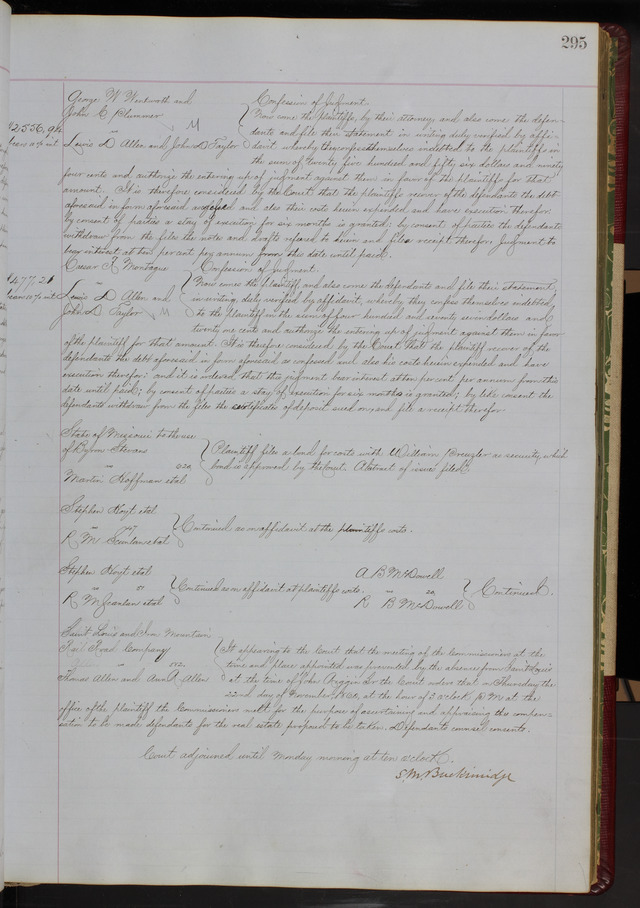 295
George W Wentworth and
John C Plummer
vs
Lewis D Allen and John D Taylor
$2,556,90
Confession of Judgment.
Now come the plaintiffs, by their attorney, and also come the defen-
dants and file their statement in writing duly verified by affi-
davit whereby they confess themselves indebted to the plaintiffs in
the sum of twenty five hundred and fifty six dollars and ninety
four cents and authorize the entering up of judgment against them in favor of the plaintiffs for that
amount. It is therefore considered by the Court that the plaintiffs recover of the defendants the debt
aforesaid in form aforesaid confessed and also their costs herein expended and have execution therefor.
By consent of parties a stay of execution for six months is granted; by consent of parties the defendants
withdraw from the files the notes and drafts refered to herein and file a receipt therefor. Judgment to
bear interest at ten per cent per annum from this date until paid.
Oscar F. Montague
vs
Lewis D Allen and
John D Taylor
$477,21
Confession of Judgment.
Now comes the plaintiff and also come the defendants and file their statement
in writing, duly verified by affidavit, whereby they confess themselves indebted
to the plaintiff in the sum of four hundred and seventy seven dollars and
twenty one cents and authorize the entering up of judgment against them in favor
of the plaintiff for that amount. It is therefore considered by the Court that the plaintiff recover of the
defendants the debt aforesaid in form aforesaid as confessed and also his costs herein expended and have
execution therefor: and it is ordered that this judgment bear interest at ten per cent per annum from this
date until paid; by consent of parties a stay of execution for six months is granted; by like consent the
defendants withdraw from the files the certificates of deposit sued on and file a receipt therefor
State of Missouri to the use
of Stevens
vs
Martin Hoffman et al
Plaintiff files a bond for costs with William as security, which
bond is approved by the Court. Abstract of issue filed.
Stephen Hoyt et al
vs
R M Scanlan et al
Continued as on affidavit at the plaintiffs costs.
Stephen Hoyt et al
vs
R M Scanlan et al
Continued as on affidavit at plaintiffs costs.
A B McDowell
vs
R B McDowell
Continued
Saint Louis and Iron Mountain
Rail Road Company
vs
Thomas Allen and Ann R Allen
It appearing to the Court that the meeting of the Commissioners at the
time and place appointed was prevented by the absence from Saint Louis
at the time of John the Court orders that on Thursday the
22nd day of November at the hour of 3 o'clock P.M at the
office of the plaintiff the Commissioners meet for the purpose of ascertaining and appraising the compen-
sation to be made defendants for the real estate proposed to be taken. Defendants counsel consents.
Court adjourned until Monday morning at ten o'clock.
S. M. Breckinridge